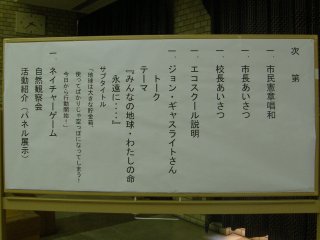 次　第
一．市民憲章唱和
一．市長あいさつ
一．校長あいさつ
一．エコスクール説明
一．ジョン・ギャスライトさん
トーク
テーマ
『みんなの地球・わたしの命
永遠に・・・』
サブタイトル
「地球は大きな貯金箱、
使ってばかりじゃ空っぽになってしまう！
今日から行動開始！」
一．ネイチャーゲーム
自然観察会
活動紹介（パネル展示）